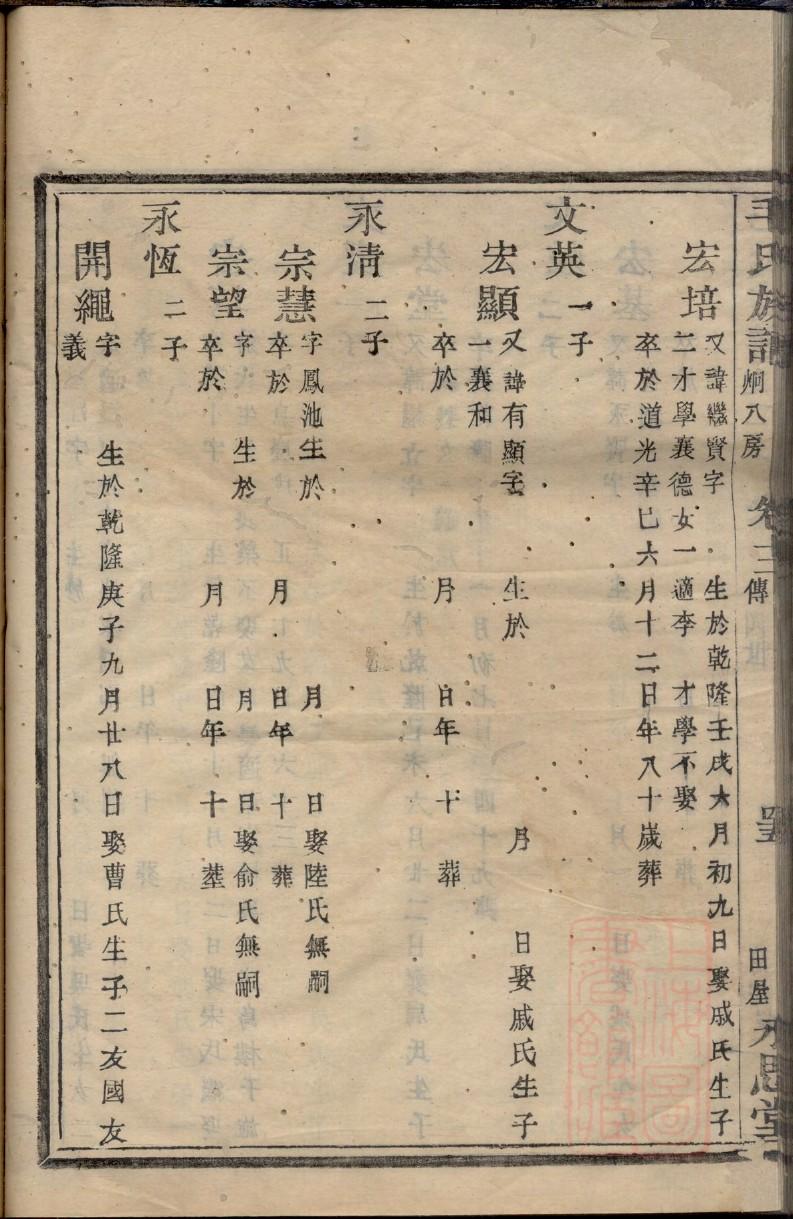 毛氏族譜 炯八房 卷十三 傳 田屋 永思堂
宏培 又諱繼賢字 生於乾隆壬戌六月初九日娶戚氏生子
二才學襄德女一適李 才學不娶
卒於道光辛巳六月十二日年八十歲葬
文英 一子
宏顯 又諱有顯字 生於 月 日娶戚氏生子
一襄和
卒於 月 日年 十 葬
永清 二子
宗慧 字鳳池生於 月 日娶陸氏無嗣
卒於 月 日年 十 葬
宗望 字 生於 月 日娶俞氏無嗣
卒於 月 日年 十 葬
永恆 二子
開繩 字 生於乾隆庚子九月廿八日娶曹氏生子二友國友
義